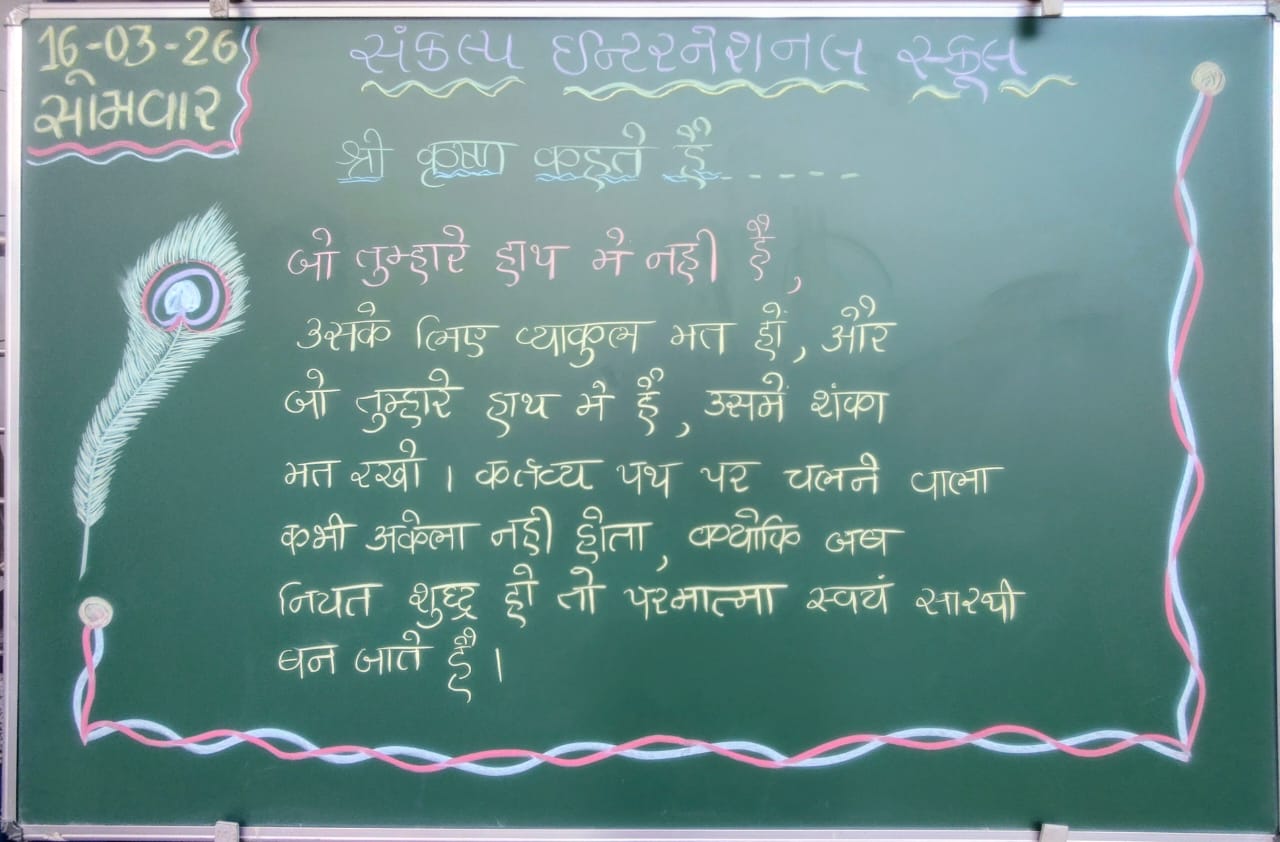 16-03-26
सोमवार
संकल्प इन्टरनेशनल स्कूल
श्री कृष्ण कहते हैं......
जो तुम्हारे हाथ में नही है,
उसके लिए व्याकुल मत हों, और
जो तुम्हारे हाथ में है, उसमें शंका
मत रखो। कर्तव्य पथ पर चलने वाला
कभी अकेला नही होता, क्योकि जब
नियत शुद्ध हो तो परमात्मा स्वयं सारथी
बन जाते है।